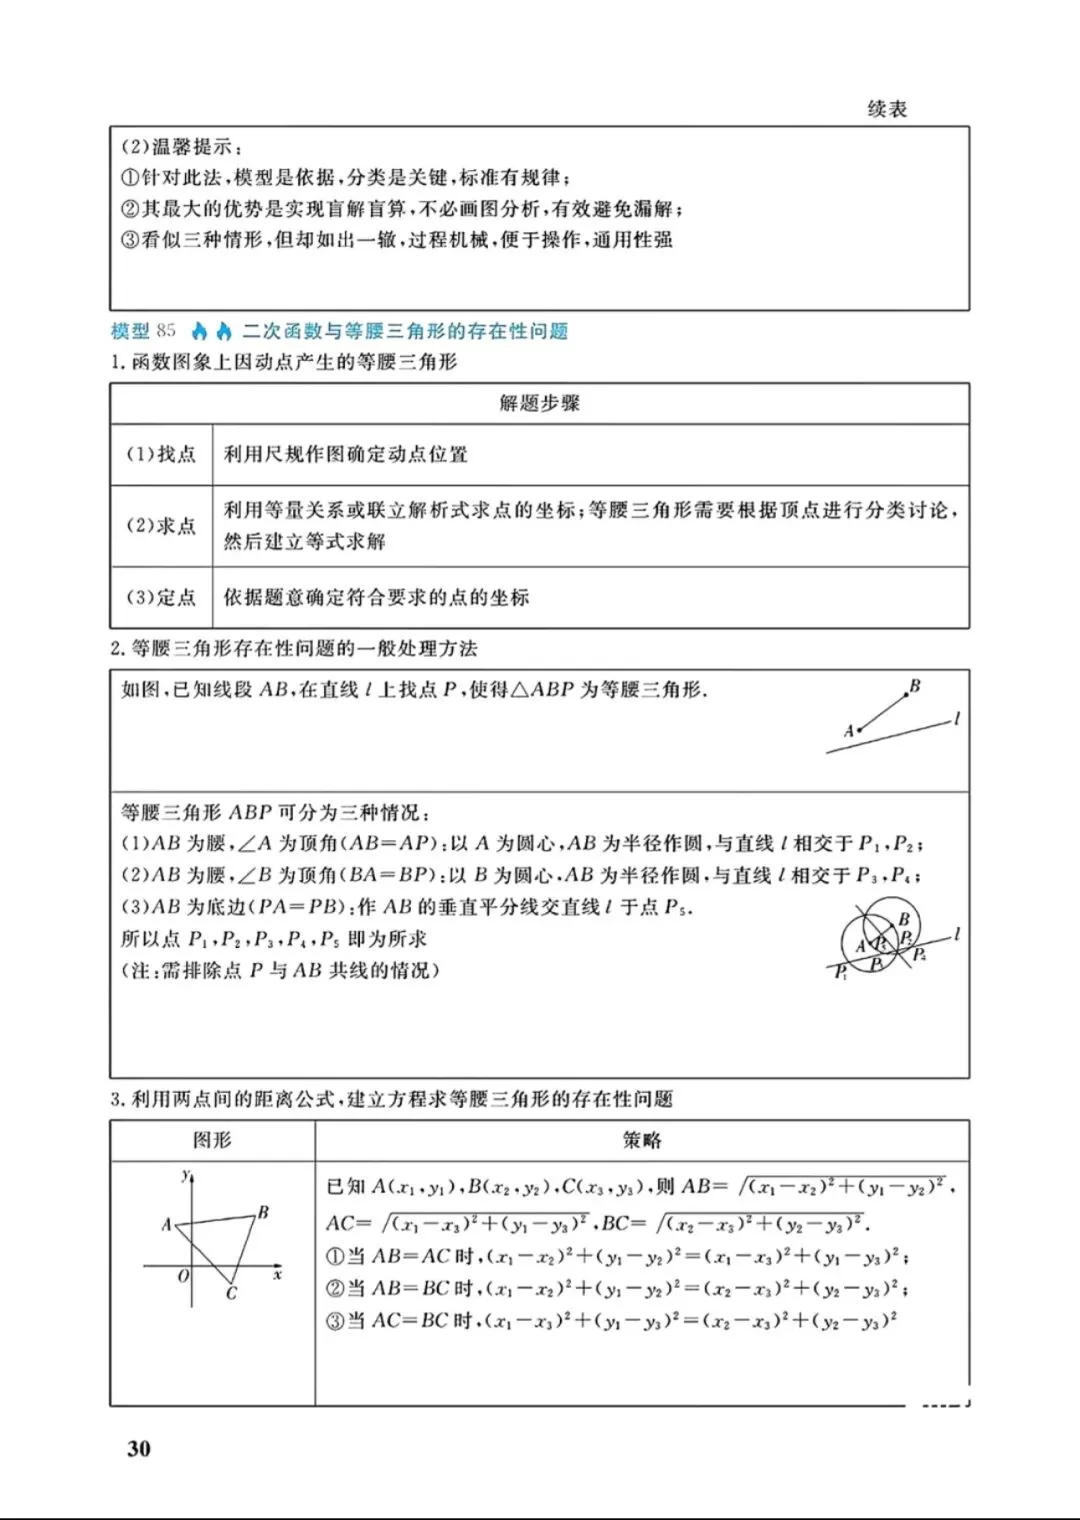 续表
(2)温馨提示：
①针对此法,模型是依据,分类是关键,标准有规律；
②其最大的优势是实现盲解盲算,不必画图分析,有效避免漏解；
③看似三种情形,但却如出一辙,过程机械,便于操作,通用性强
模型 85 二次函数与等腰三角形的存在性问题
1. 函数图象上因动点产生的等腰三角形
解题步骤
(1)找点 利用尺规作图确定动点位置
(2)求点 利用等量关系或联立解析式求点的坐标；等腰三角形需要根据顶点进行分类讨论,
然后建立等式求解
(3)定点 依据题意确定符合要求的点的坐标
2. 等腰三角形存在性问题的一般处理方法
如图,已知线段 AB,在直线 l 上找点 P,使得△ABP 为等腰三角形.
B
A
l
等腰三角形 ABP 可分为三种情况：
(1)AB 为腰,∠A 为顶角(AB=AP)：以 A 为圆心,AB 为半径作圆,与直线 l 相交于 P₁,P₂；
(2)AB 为腰,∠B 为顶角(BA=BP)：以 B 为圆心,AB 为半径作圆,与直线 l 相交于 P₃,P₄；
(3)AB 为底边(PA=PB)：作 AB 的垂直平分线交直线 l 于点 P₅.
所以点 P₁,P₂,P₃,P₄,P₅ 即为所求
(注：需排除点 P 与 AB 共线的情况)
B
A
l
P₁
P₄
3. 利用两点间的距离公式,建立方程求等腰三角形的存在性问题
图形 策略
y
A
B
O
x
C
已知 A(x₁,y₁),B(x₂,y₂),C(x₃,y₃),则 AB=√(x₁−x₂)²+(y₁−y₂)²,
AC=√(x₁−x₃)²+(y₁−y₃)²,BC=√(x₂−x₃)²+(y₂−y₃)².
①当 AB=AC 时,(x₁−x₂)²+(y₁−y₂)²=(x₁−x₃)²+(y₁−y₃)²；
②当 AB=BC 时,(x₁−x₂)²+(y₁−y₂)²=(x₂−x₃)²+(y₂−y₃)²；
③当 AC=BC 时,(x₁−x₃)²+(y₁−y₃)²=(x₂−x₃)²+(y₂−y₃)²
30